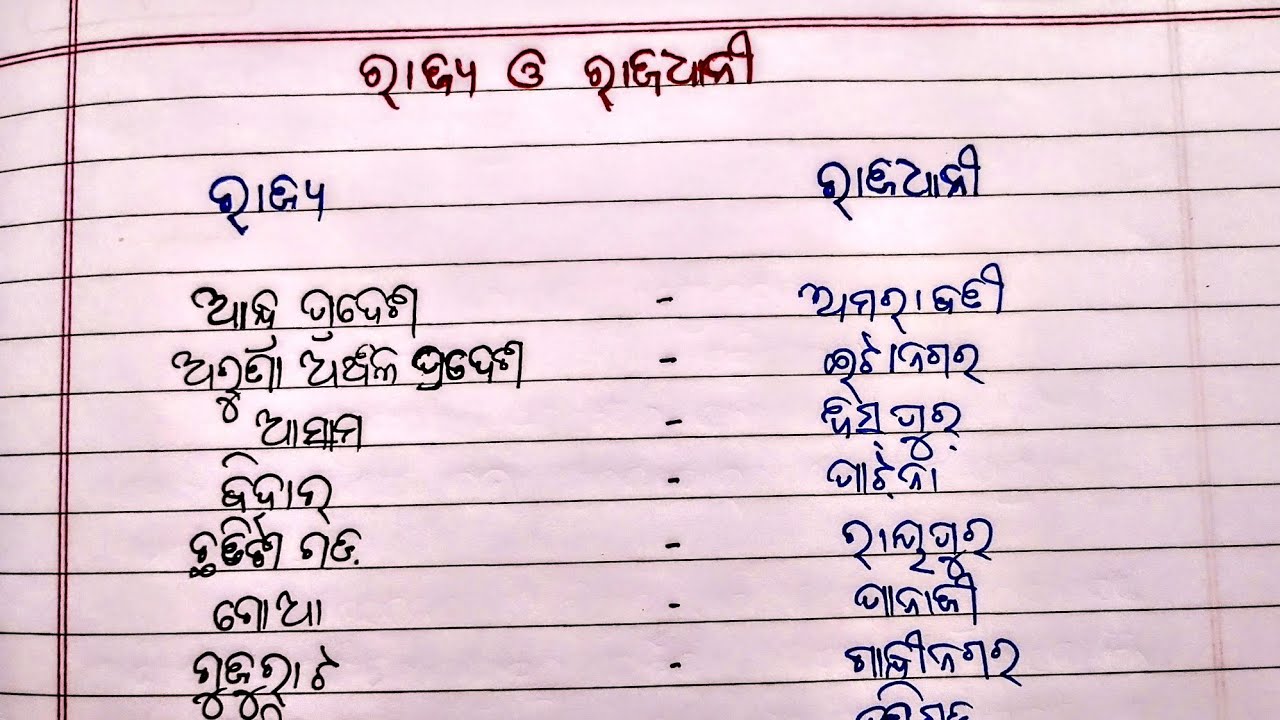 ରାଜ୍ୟ ଓ ରାଜଧାନୀ
ରାଜ୍ୟ ରାଜଧାନୀ
ଆନ୍ଧ୍ର ପ୍ରଦେଶ - ଅମରାବତୀ
ଅରୁଣାଁ ଅଁଞ୍ଚଳ ପ୍ରଦେଶ - ଇଟାନଗର
ଆସାମ - ଦିସପୁର
ବିହାର - ପାଟନା
ଛତିଶ ଗଡ଼ - ରାୟପୁର
ଗୋଆ - ପାନାଜୀ
ଗୁଜୁରାଟ - ଗାନ୍ଧୀନଗର